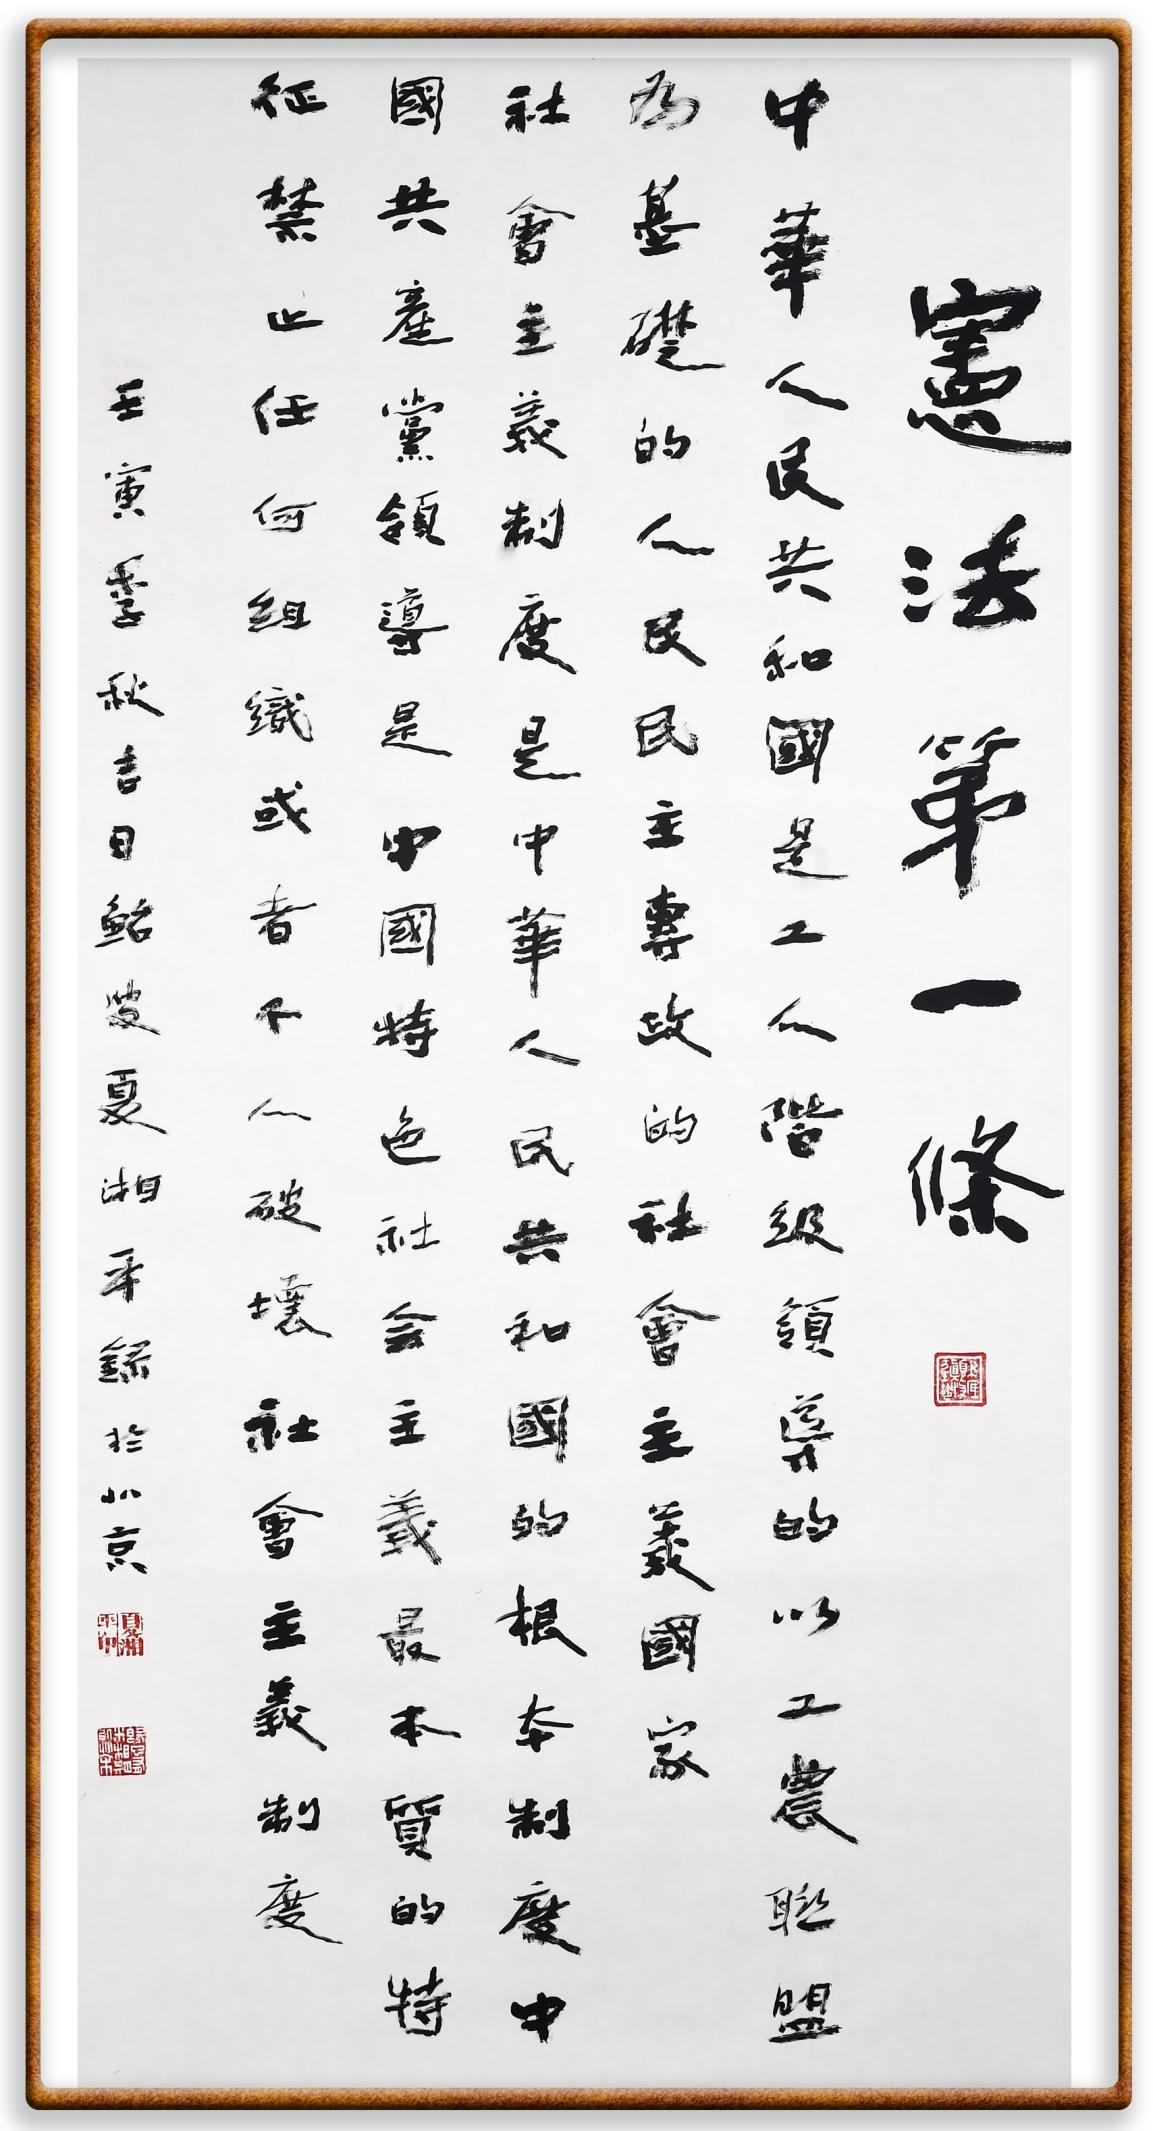 憲法第一條
中華人民共和國是工人階級領導的以工農聯盟
為基礎的人民民主專政的社會主義國家
社會主義制度是中華人民共和國的根本制度中
國共產黨領導是中國特色社会主義最本質的特
征禁止任何組織或者个人破壞社會主義制度
壬寅季秋吉日鮐叟夏湘平錄於北京